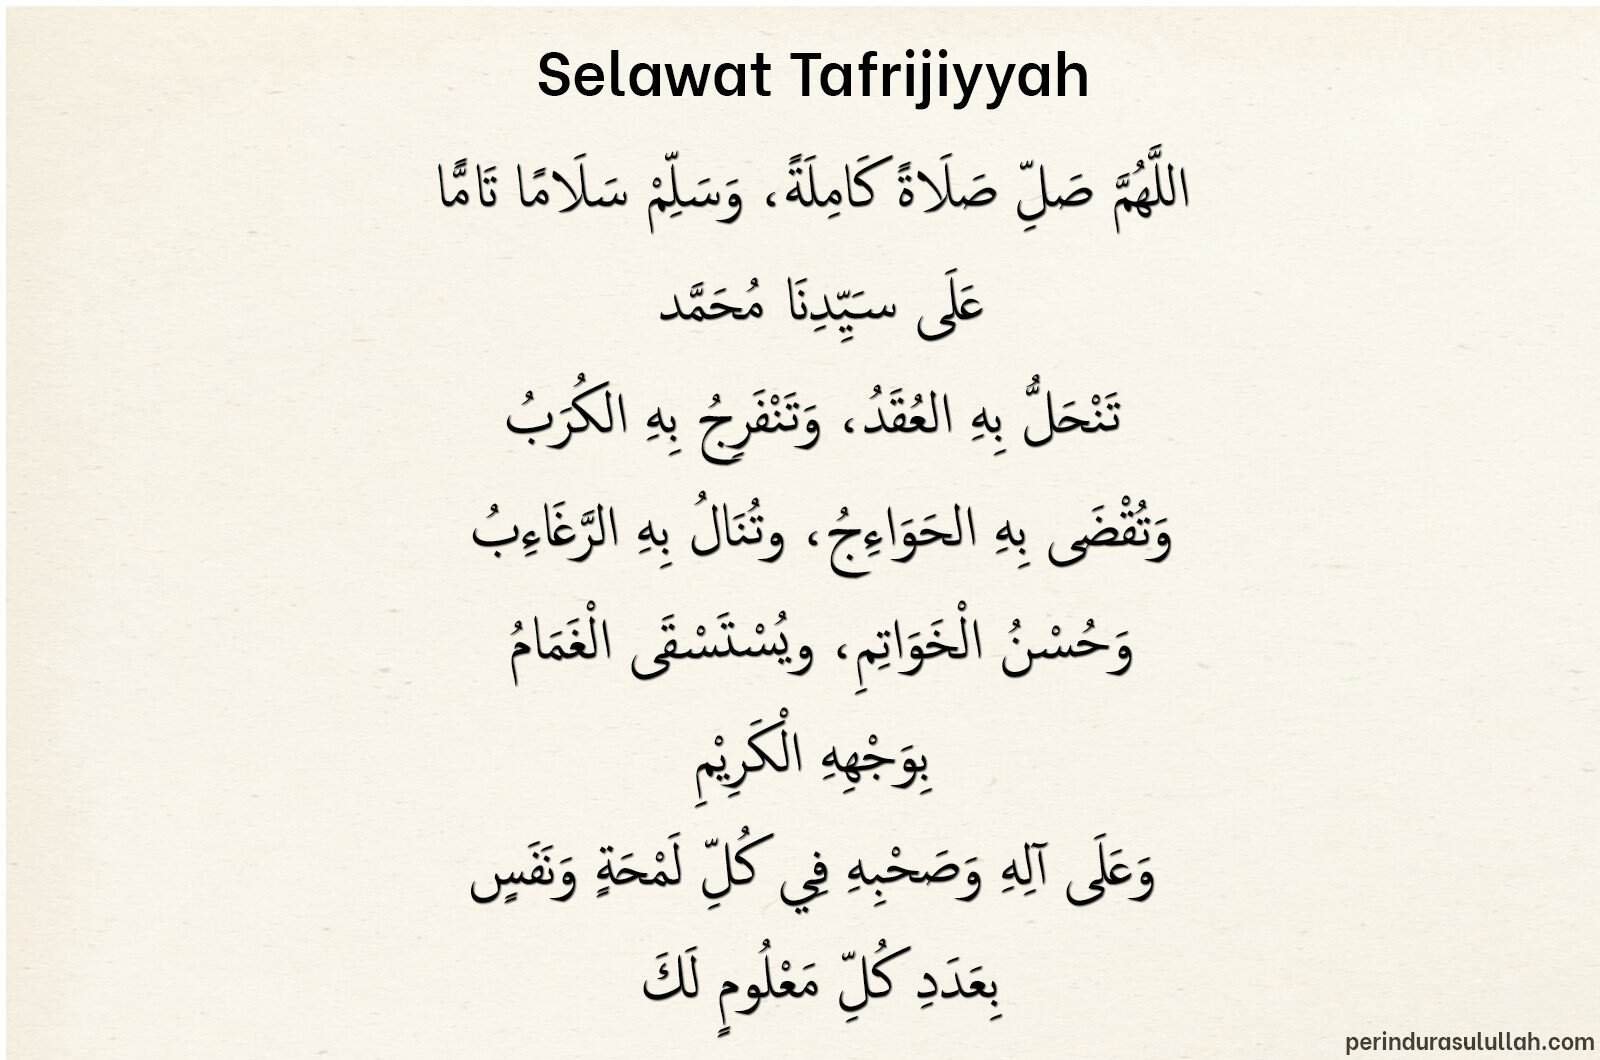 Selawat Tafrijiyyah
اللَّهُمَّ صَلِّ صَلَاةً كَامِلَةً، وَسَلِّمْ سَلَامًا تَامًّا
عَلَى سَيِّدِنَا مُحَمَّد
تَنْحَلُّ بِهِ العُقَدُ، وَتَنْفَرِجُ بِهِ الكُرَبُ
وَتُقْضَى بِهِ الحَوَاءِجُ، وتُنَالُ بِهِ الرَّغَاءِبُ
وَحُسْنُ الْخَوَاتِمِ، ويُسْتَسْقَى الْغَمَامُ
بِوَجْهِهِ الْكَرِيْمِ
وَعَلَى آلِهِ وَصَحْبِهِ فِي كُلِّ لَمْحَةٍ وَنَفَسٍ
بِعَدَدِ كُلِّ مَعْلُومٍ لَكَ
perindurasulullah.com